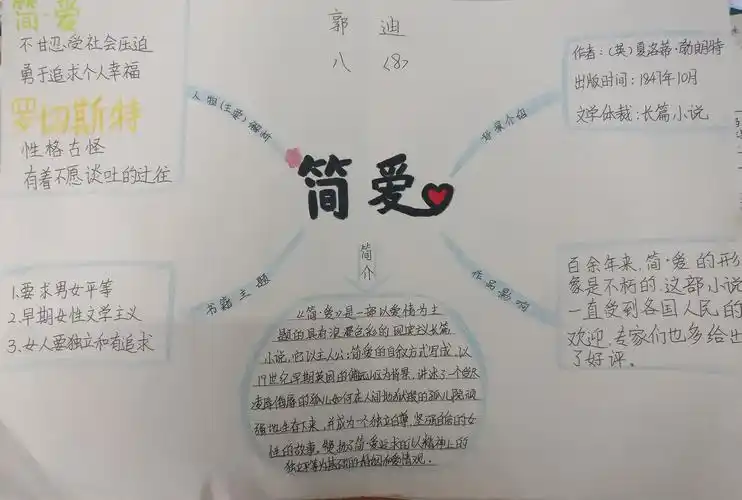 简·爱
不甘忍受社会压迫
勇于追求个人幸福
罗切斯特
性格古怪
有着不愿谈吐的过往
郭迪
八〈8〉
作者:(英)夏洛蒂·勃朗特
出版时间:1847年10月
文学体裁:长篇小说
人物(主要)解析
简爱
书籍主题
1.要求男女平等
2.早期女性文学主义
3.女人要独立和有追求
简介
《简·爱》是一部以爱情为主
题的具有浪漫色彩的现实主义长篇
小说,它以主人公:简爱的自叙方式写成,以
19世纪早期英国的偏远山区为背景,讲述了一个受尽
的孤儿如何在人间地狱般的孤儿院顽
强地生存下来,并成为一个独立自尊,坚强自信的女
性的故事。简·爱追求的以精神上的
独立平等为基础的和爱情观。
作品影响
百余年来,简·爱的形
象是不朽的,这部小说
一直受到各国人民的
欢迎,专家们也多给出
了好评。